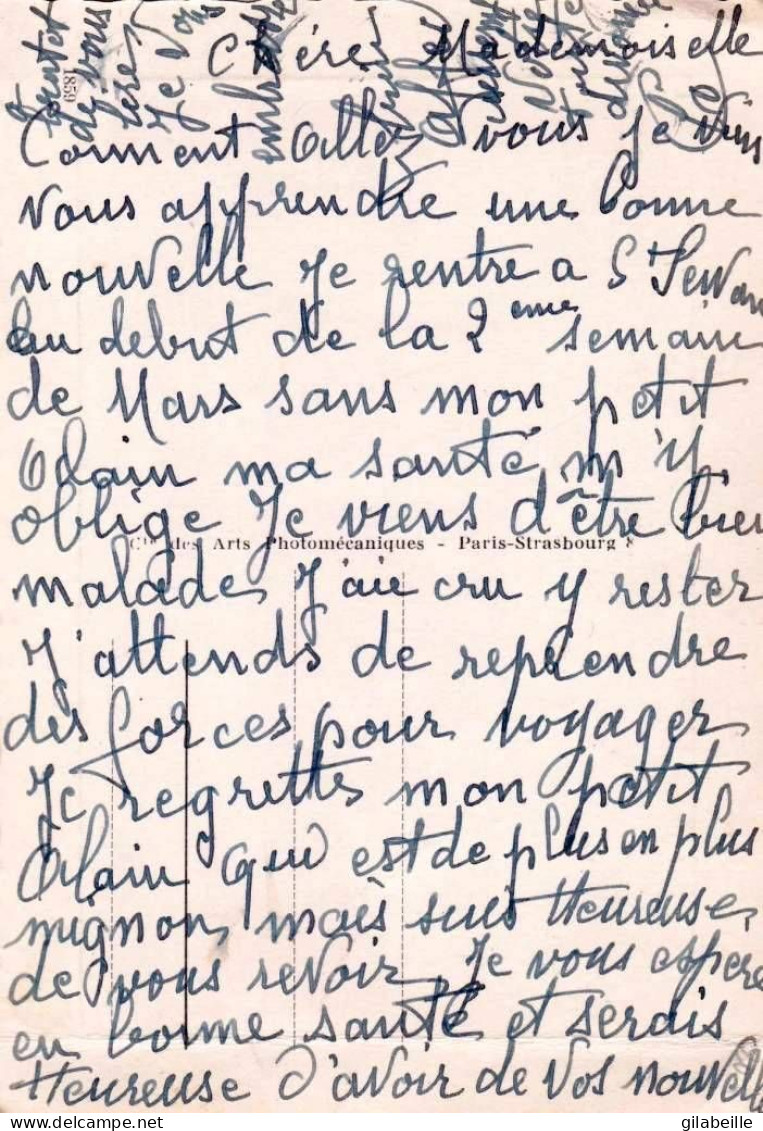 Chère Mademoiselle
Comment allez vous je viens
vous apprendre une bonne
nouvelle je rentre a St Servan
au debut de la 2eme semaine
de Mars sans mon petit
Alain ma santé m'y
oblige Je viens d'être bien
Cie des Arts Photomécaniques - Paris-Strasbourg
malade, J'aie cru y rester
J'attends de reprendre
des forces pour voyager
Je regrettes mon petit
Alain qui est de plus en plus
mignon, mais suis Heureuse
de vous revoir, Je vous espere
en bonne santé et serais
Heureuse d'avoir de vos nouvelles
1859
de vous
Je vous
gilabeille